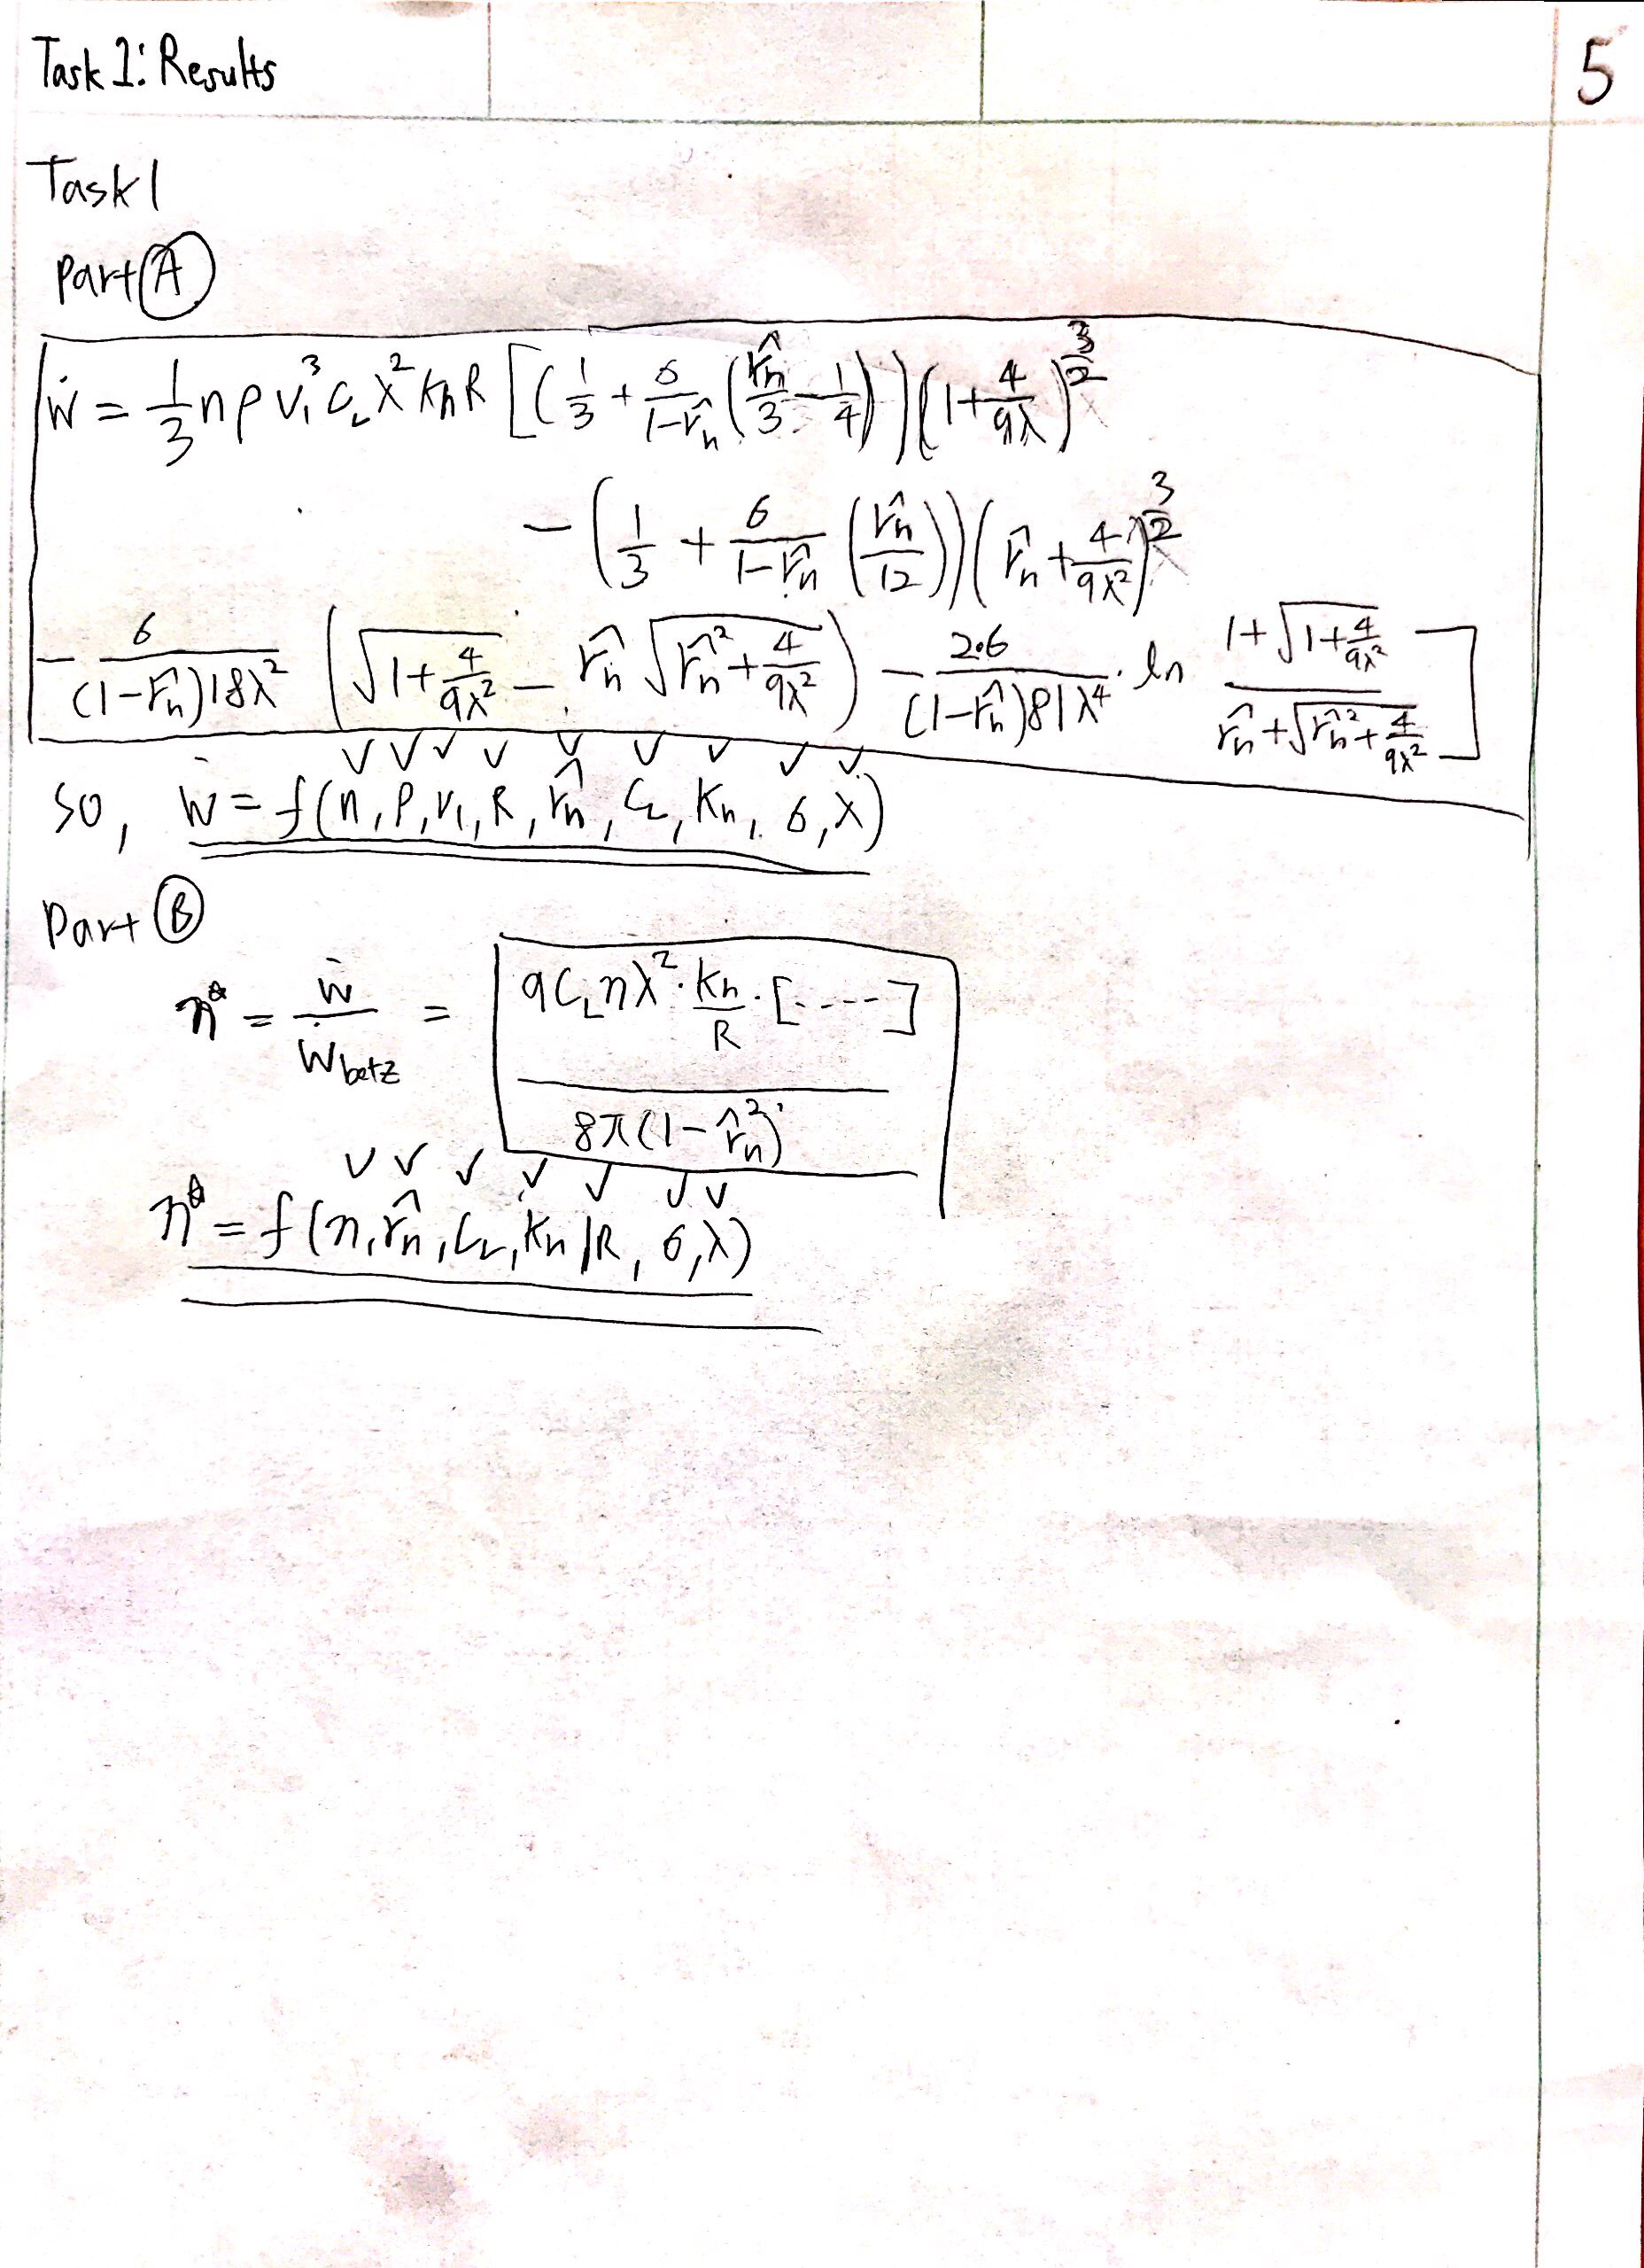 Task 1: Results
5
Task 1
Part Ⓐ
Ẇ = 1/3 n ρ V₁³ C_L λ² K_h R [(1/3 + σ/(1-r̂_h) (r̂_h/3 - 1/4))(1 + 4/9λ)^(3/2)
- (1/3 + σ/(1-r̂_h) (r̂_h/12))(r̂_h + 4/9λ²)^(3/2)
- σ/((1-r̂_h)18λ²) (√(1+4/9λ²) - r̂_h √(r̂_h² + 4/9λ²)) - 2·σ/((1-r̂_h)81λ⁴) · ln (1+√(1+4/9λ²))/(r̂_h+√(r̂_h²+4/9λ²))]
✓ ✓ ✓ ✓ ✓ ✓ ✓ ✓ ✓
so, Ẇ = f(n, ρ, V₁, R, r̂_h, C_L, K_h, σ, λ)
Part Ⓑ
η* = Ẇ/Ẇ_betz = (9 C_L n λ² · K_h/R · [----])/(8π(1-r̂_h²))
✓ ✓ ✓ ✓ ✓ ✓ ✓
η* = f(n, r̂_h, C_L, K_h/R, σ, λ)